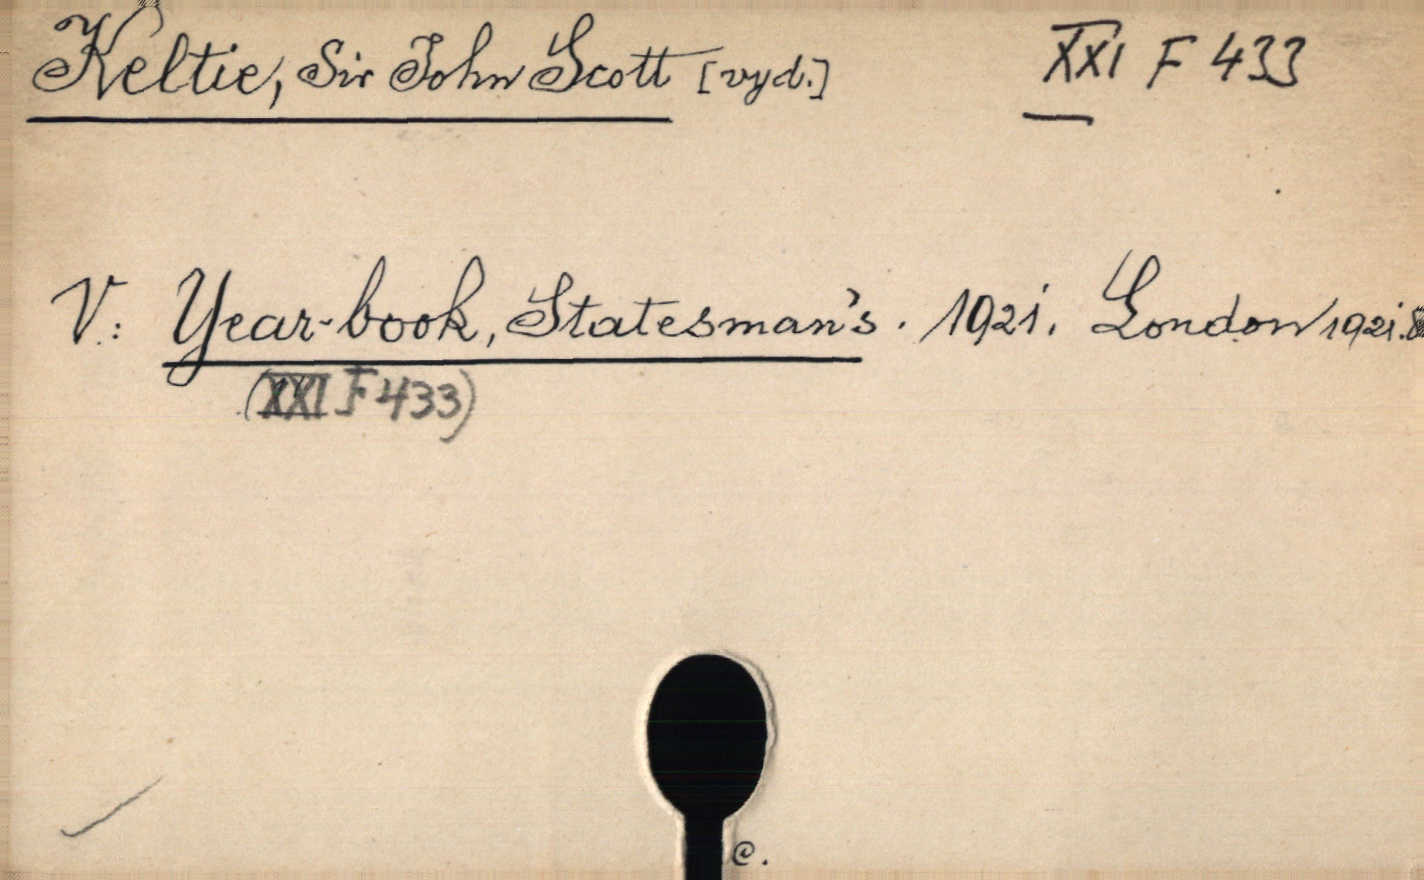 Keltie, Sir John Scott [vyd.] XXI F 433
V: Year-book, Statesman's. 1921. London 1921. 8
(XXI F 433)
C.